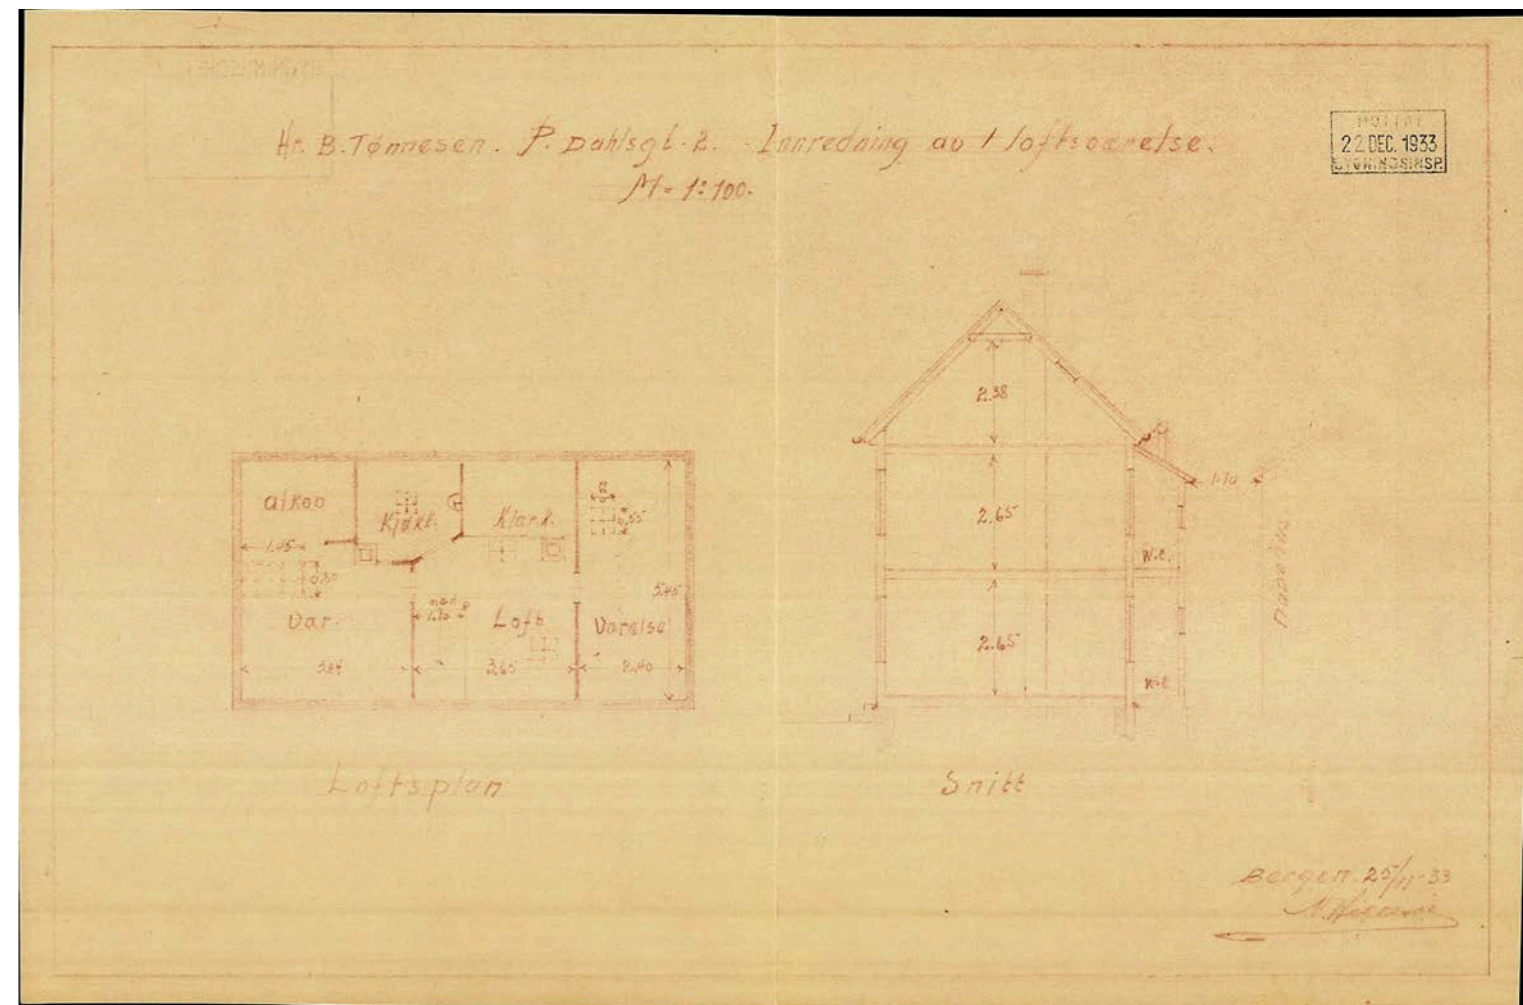 Hr. B. Tønnesen. P. Dahlsgt. 2. Innredning av 1 loftsværelse.
M = 1:100.
MOTTAT
22 DEC. 1933
BYGNINGSINSP.
alkov
Kjøkk.
Klark.
0.55
1.45
0.80
Var.
ned
1.10
Loft
Værelse
5.45
3.84
3.65
2.40
Loftsplan
2.38
2.65
2.65
W.c.
W.c.
1.10
Nabohus
Snitt
Bergen. 25/11-33